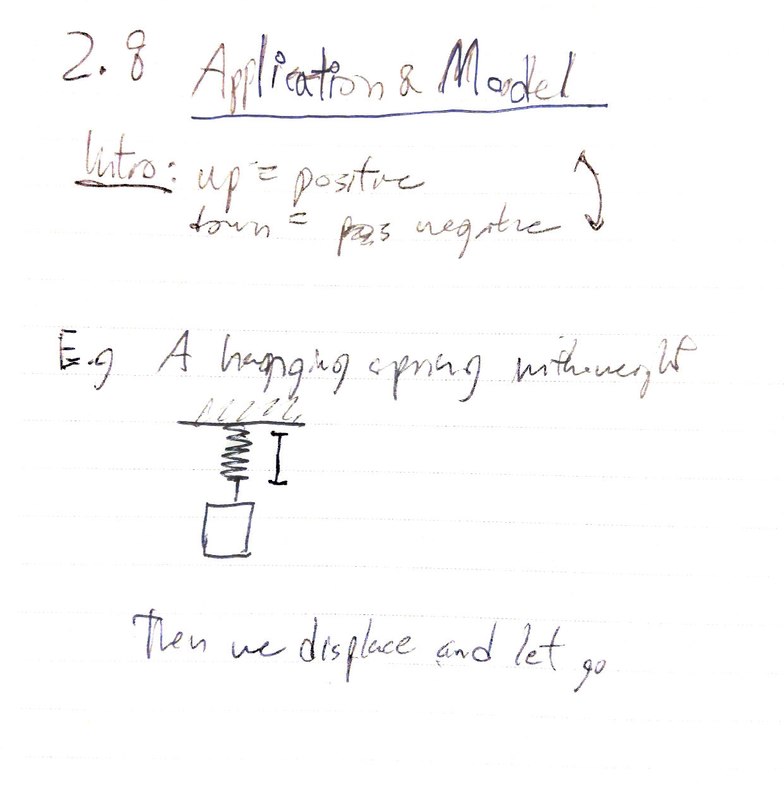 2.8 Application & Model
Intro: up = positive
down = pos negative
E.g A hanging spring with weight
I
Then we displace and let go